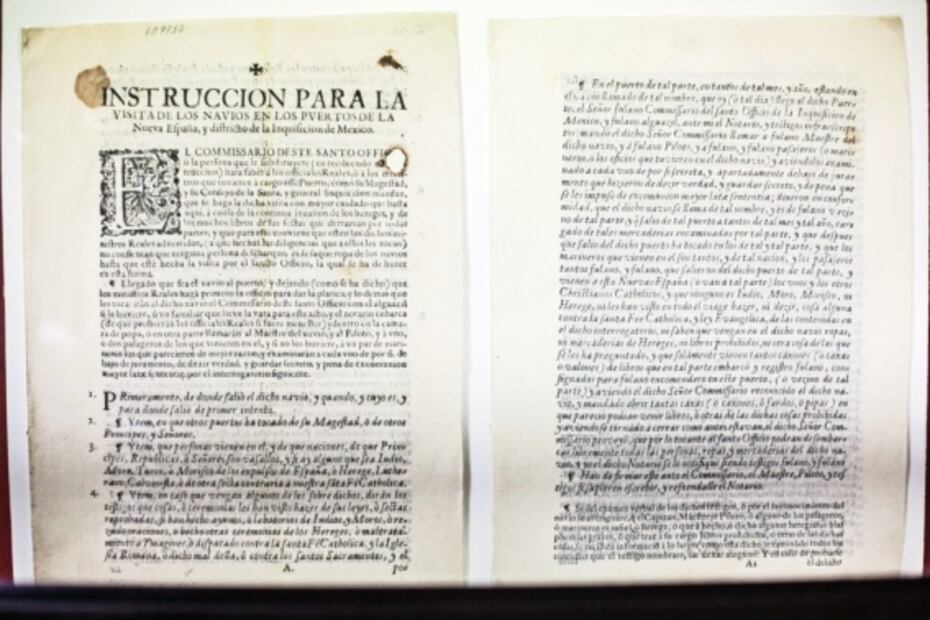 INSTRUCCION PARA LA
VISITA DE LOS NAVIOS EN LOS PVERTOS DE LA
Nueva España, y distrito de la Inquisicion de Mexico.
EL COMMISSARIO DESTE SANTO OFFI
ò la persona que le substituyere (en recibiendo
truccion) hara saber à los officiales Reales, ò à los
tros que tuvieren à cargo esse Puerto, como su Magestad,
y su Consejo de la Santa, y general Inquisicion mandan,
que se haga la dicha visita con mayor cuidado que hasta
aqui, à causa de la continua de los hereges, y de
los muchos libros de sus sectas que derraman por todas
partes, y que para esto conviene que esten los dichos mi-
nistros Reales advertidos, (à que hechas las diligencias que à ellos les toca)
no consientan que ninguna persona desembarque, ni se saque ropa de los navios
hasta que estè hecha la visita por el sancto Officio, la qual se ha de hazer
en esta forma.
¶ Llegado que sea el navio al puerto, y dejando (como se ha dicho) que
los ministros Reales hagã primero su officio para dar la platica, y lo demas que
les toca: irán al dicho navio el Commissario deste santo Officio con el alguacil
si le huviere, ò un familiar que lleve la vara para este acto, y el notario
(de que proveeràn los officiales Reales si fuere menester) y dentro en la cama-
ra de popa, ò en otra parte llamaràn al Maestre del navio, y al Piloto, y à uno,
ò dos pasageros de los que vinieren en el, y si no los huviere, à un par de mari-
neros los que parecieren de mayor razon, y examinaràn à cada uno de por si, de-
bajo de juramento, de dezir verdad, y guardar secreto, y pena de excomunion
mayor latæ sententiæ, por el interrogatorio siguiente.
1. PRimeramente, de donde saliò el dicho navio, y quando, y cuyo es, y
para donde saliò de primer intento.
2. ¶ Ytem, en que otros puertos ha tocado de su Magestad, ò de otros
Principes, y Señores.
3. ¶ Ytem, que personas vienen en el, y de que naciones, de que Princi-
pes, Republicas, ò Señores son vasallos, y si ay alguno que sea Iudio,
Moro, Turco, ò Morisco de los expulsos de España, ò Herege, Luthe-
rano, Calvinista, ò de otra secta contraria à nuestra sãta Fè Catholica.
4. ¶ Ytem, en caso que vengan algunos de los sobre dichos, diràn los
testigos que cosas, ò ceremonias les han visto hazer de sus leyes, ò sectas
reprobadas, si han hecho ayunos, ò  de Indios, y Moros, ò re-
zado oraciones, ò hecho otras ceremonias de los Hereges, ò maltrata-
miento à Ymagines, ò disparado contra la santa Fè Catholica, y la Igle-
sia Romana, ò dicho mal de ella, ò contra los Santos Sacramentos, y el
A.
por
¶ En el puerto de tal parte, en tantos de tal mes, y año, estando en
el navio llamado de tal nombre, que oy (ò tal dia) llegò al dicho Puer-
to, el Señor fulano Commissario del santo Officio de la Inquisicion de
Mexico, y fulano alguazil, ante mi el Notario, y testigos infraescrip-
tos: mandò el dicho Señor Commissario llamar à fulano Maestre del
dicho navio, y à fulano Piloto, y à fulano, y fulano pasajeros (ò mari-
neros, ò los oficios que tuvieren en el dicho navio) y aviendolos exami-
nado à cada vno de por si secreta, y apartadamente debajo de jura-
mento que hizieron de dezir verdad, y guardar secreto, y de pena que
se les impuso de excomunion mayor lata sententia; dixeron en confor-
midad, que el dicho navio se llama de tal nombre, y es de fulano vezi-
no de tal parte, y saliò de tal puerto à tantos de tal mes y tal año, car-
gado de tales mercaderias encaminadas por tal parte, y que despues
que saliò del dicho puerto ha tocado en los de tal y tal parte, y que los
marineros que vienen en el son tantos, y de tal nacion, y los pasajeros
tantos fulano, y fulano, que salieron del dicho puerto de tal parte, y
vienen à esta Nueva España (ò van à tal parte) y los vnos y los otros
Christianos Catholicos, y que ninguno es Iudio, Moro, Morisco, ni
Herege, ni les han visto en todo el viage hazer, ni dezir, cosa alguna
contra la santa Fee Catholica, y ley Evangelica, de las contenidas en
el dicho interrogatorio, ni saben que vengan en el dicho navio ropas,
ni mercaderias de Hereges, ni libros prohibidos, ne otra cosa de las que
se les ha preguntado, y que solamente vienen tantos caxones (ò caxas
ò valones) de libros que en tal parte embarcò y registro fulano, con-
signadas para fulano encomendero en este puerto, (ò vezino de tal
parte) y aviendo el dicho Señor Commissario reconocido el dicho na-
vio, y mandado abrir tantas caxas (ò caxones, ò fardos, ò pipas) en
que parecio podian venir libros, ò otras de las dichas cosas prohibidas,
y aviendose tornado à cerrar como antes estavan, el dicho Señor Com-
missario proveyò, que por lo tocante al santo Officio podràn desembar-
car libremente todas las personas, ropas, y mercaderias del dicho na-
vio, y yo el dicho Notario se lo notifiquè siendo testigos fulano, y fulano
¶ Han de firmar este auto el Commissario, el Maestre, Piloto, y tes-
tigos si supieren escrebir, y refrendalle el Notario.
¶ Si del examen verbal de los dichos testigos, ò por el reconocimiento del
el Capitan, Maestre, ò Piloto, ò alguno de los pasageros,
A2
el delicto